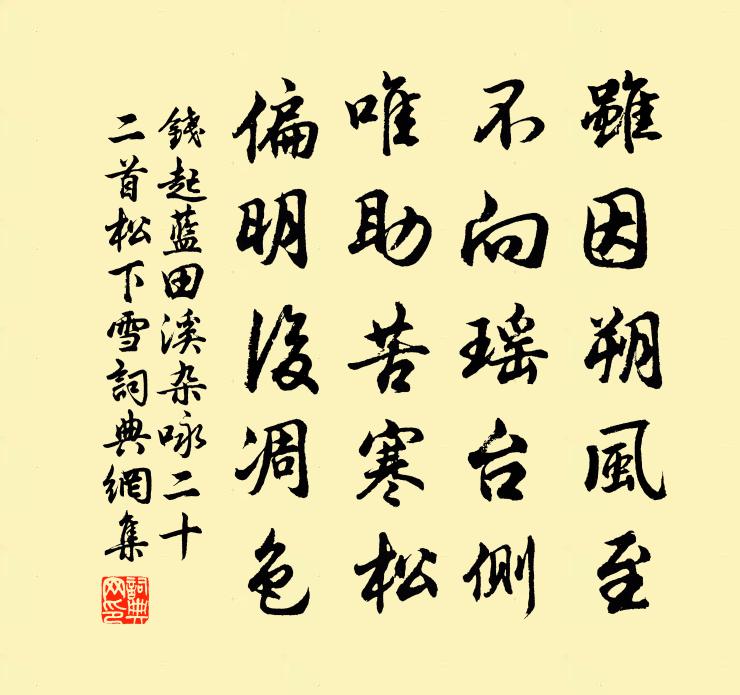 雖因朔風至
不向瑶台側
唯助苦寒松
偏明後凋色
錢起藍田溪杂咏二十
二首松下雪詞典網集
詞典
网印